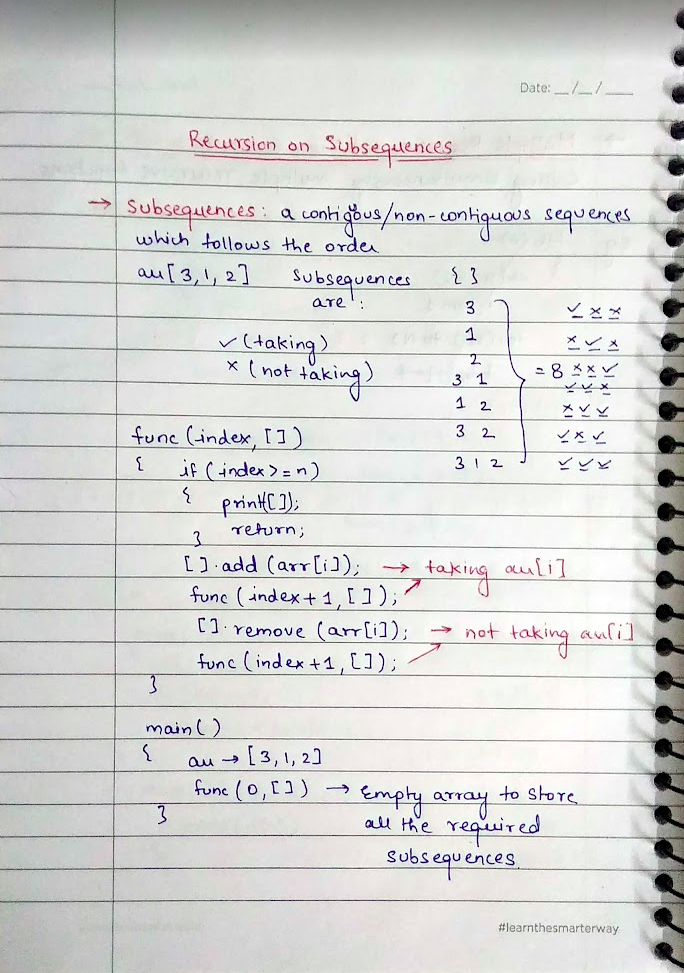 Date: __/__/___
Recursion on Subsequences
→ Subsequences: a contigous/non-contiguous sequences
which follows the order
arr[3,1,2] Subsequences { }
are:
3 ✓ x x
✓ (taking) 1 x ✓ x
x (not taking) 2 = 8 x x ✓
3 1 ✓ ✓ x
1 2 x ✓ ✓
func (index, [ ]) 3 2 ✓ x ✓
{ if (index >= n) 3 1 2 ✓ ✓ ✓
{ print([ ]);
} return;
[ ].add (arr[i]); → taking arr[i]
func (index+1, [ ]);
[ ].remove (arr[i]); → not taking arr[i]
func (index+1, [ ]);
}
main( )
{ arr → [3,1,2]
func (0, [ ]) → Empty array to store
} all the required
subsequences.
#learnthesmarterway